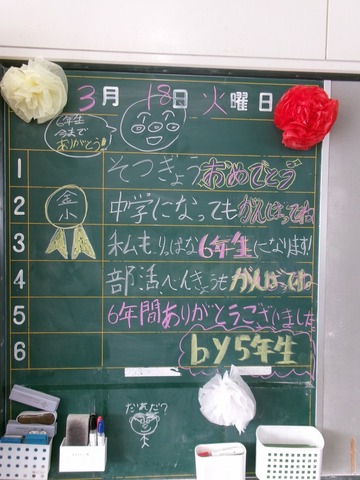 3月18日火曜日
6年生
今まで
ありがとう!
1 そつぎょうおめでとう
2 中学になってもがんばってね
金
小
3 私もりっぱな6年生になります!
4 部活、べんきょうもがんばってね
5 6年間ありがとうございました
6 by5年生
だぁあだ?